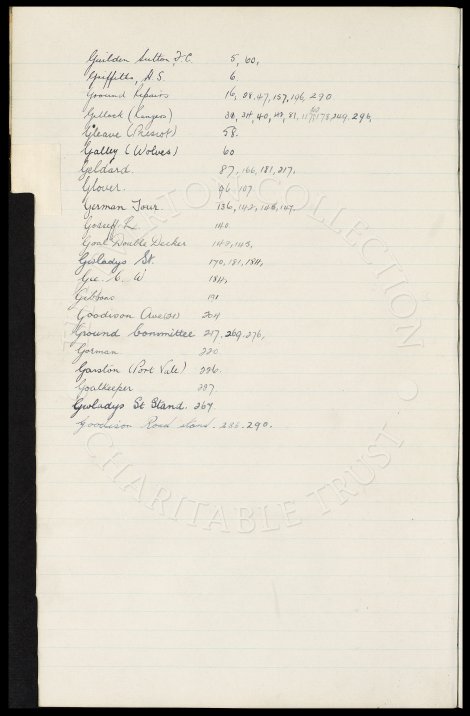 Guilden Sutton F.C. 5, 60,
Griffiths, A S. 6
Ground Repairs 16, 28, 47, 157, 196, 290
Gillick (Rangers) 40, 249, 296,
Gleave (Prescot) 58.
Galley (Wolves) 60
Geldard. 87, 166, 181, 217,
Glover. 96. 107
German Tour. 136, 142, 145, 147.
Gossep L. 140.
Goal Double Decker 142, 145,
Gwladys St. 170, 181, 184,
Gee. C. W 184,
Gibbons 191
Goodison Ave 204
Ground Committee 217. 269. 276,
Gorman 220
Garston (Port Vale) 226.
Goalkeeper 227.
Gwladys St Stand. 267
Goodison Road stand. 288. 290.
COLLECTION
CHARITABLE TRUST